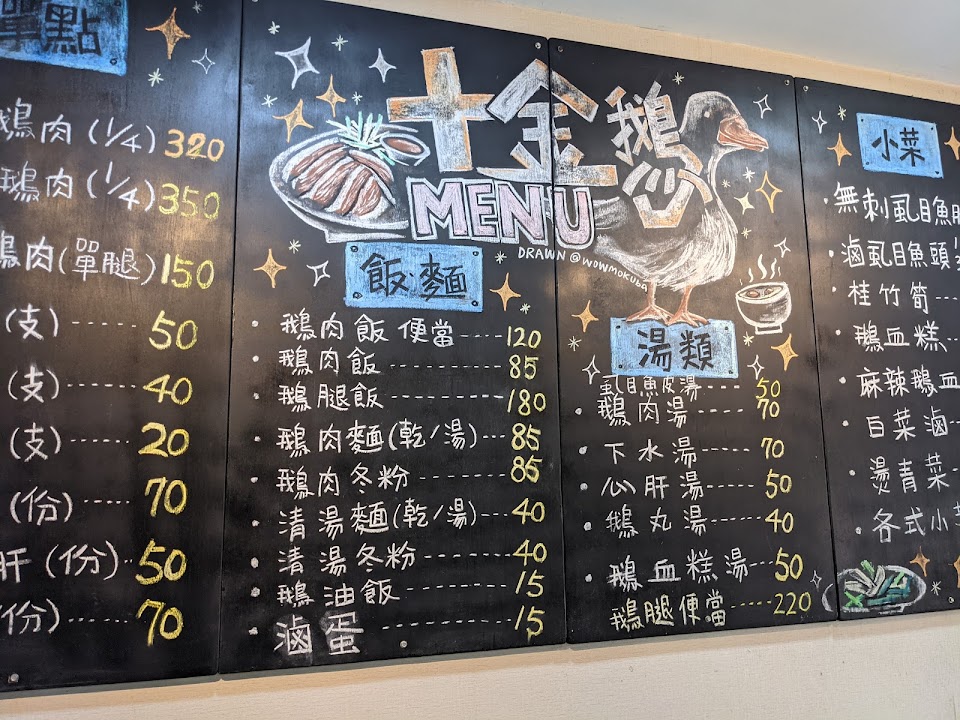 單點
鵝肉(1/4) 320
鵝肉(1/4) 350
鵝肉(單腿) 150
(支) ...... 50
(支) ...... 40
(支) ...... 20
(份) ...... 70
肝(份) .. 50
(份) 70
十金鵝
MENU
DRAWN @WOWMOKUBA
飯·麵
· 鵝肉飯便當 --- 120
· 鵝肉飯 ------ 85
· 鵝腿飯 ------ 180
· 鵝肉麵(乾/湯) --- 85
· 鵝肉冬粉 ------ 85
· 清湯麵(乾/湯) --- 40
· 清湯冬粉 ------ 40
· 鵝油飯 ------ 15
· 滷蛋 ------ 15
湯類
虱目魚皮湯 ---- 50
· 鵝肉湯 ----- 70
· 下水湯 ----- 70
· 心肝湯 ----- 50
· 鵝丸湯 ----- 40
· 鵝血糕湯 --- 50
鵝腿便當 ----- 220
小菜
· 無刺虱目魚
· 滷虱目魚頭
· 桂竹筍 ---
· 鵝血糕 ---
· 麻辣鵝血
· 白菜滷 --
· 燙青菜
· 各式小菜